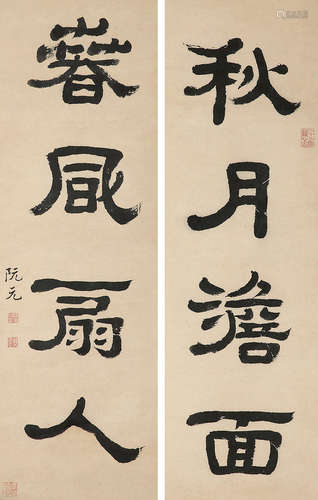 秋月澹面
萅風扇人
阮元